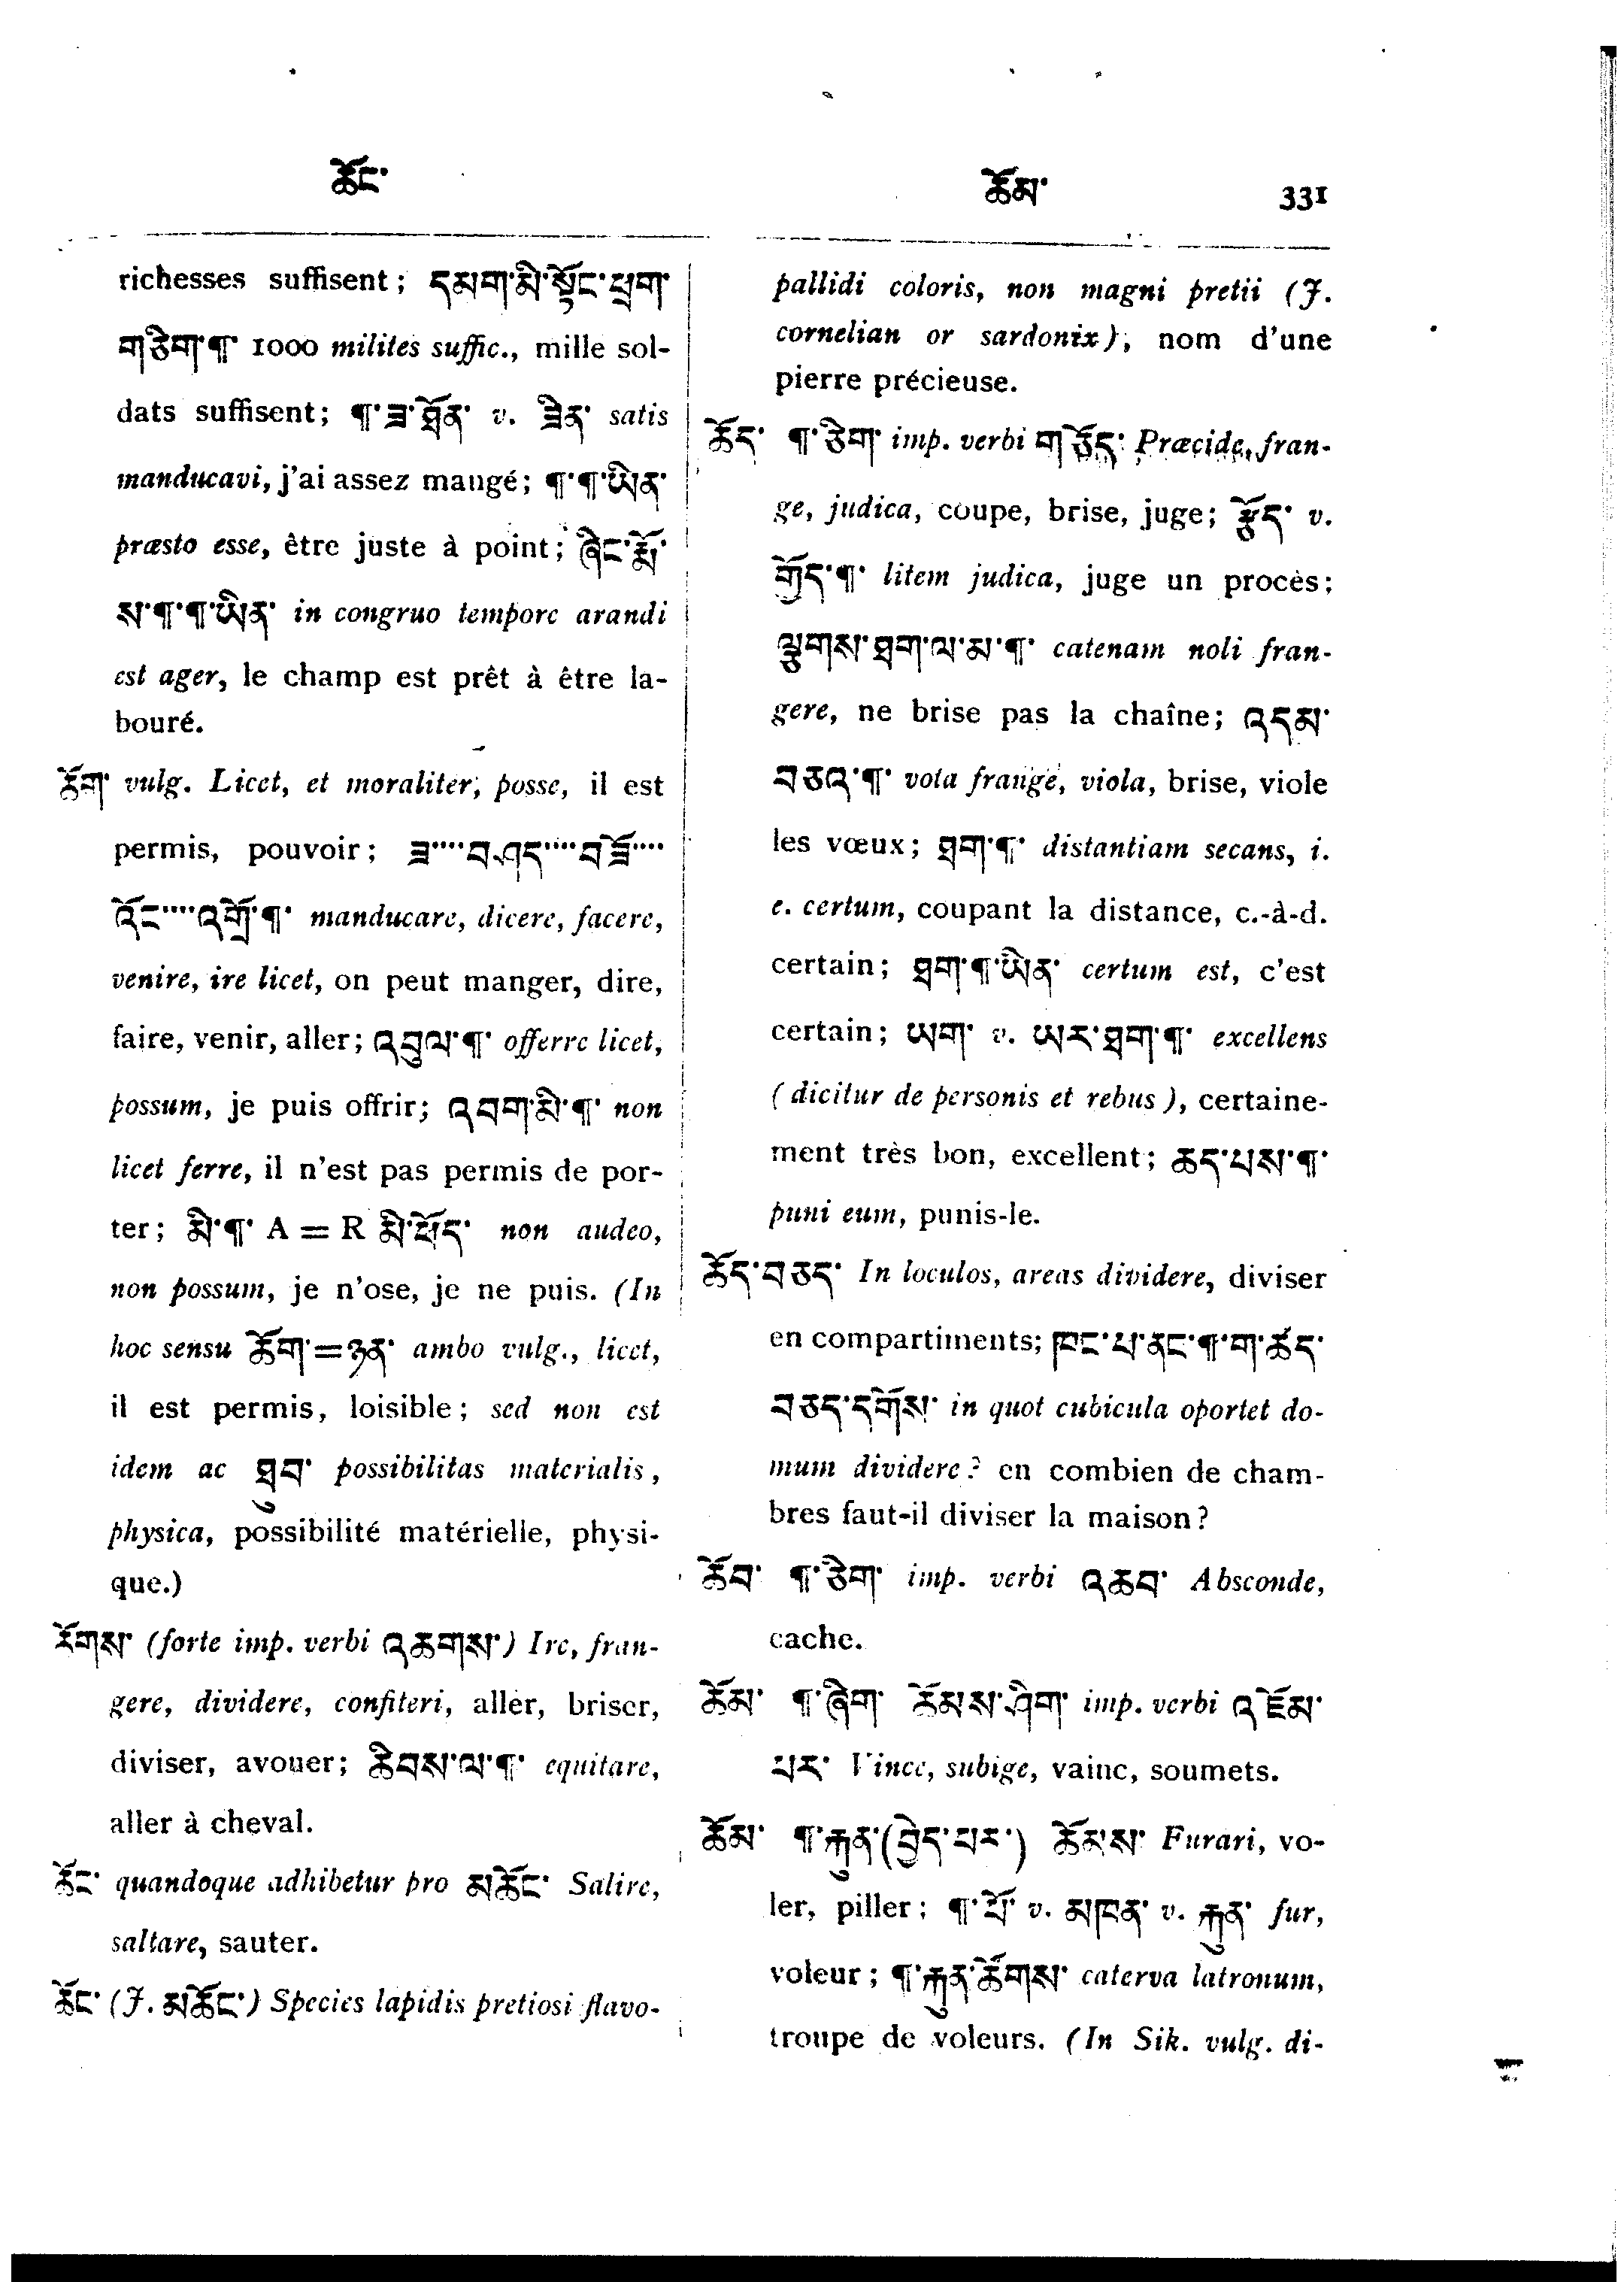 ཆོང་
ཆོམ་ 331
richesses suffisent; དམག་མི་སྟོང་ཕྲག་
གཅིག་¶་ 1000 milites suffic., mille sol-
dats suffisent; ¶་ཟ་ཐོན་ v. ཟིན་ satis
manducavi, j'ai assez mangé; ¶་¶་ཡིན་
præsto esse, être juste à point; ཞིང་རྨོ་
ས་¶་¶་ཡིན་ in congruo tempore arandi
est ager, le champ est prêt à être la-
bouré.
ཆོག་ vulg. Licet, et moraliter, posse, il est
permis, pouvoir; ཟ་...བཤད་...བཟོ་...
འོང་...འགྲོ་¶་ manducare, dicere, facere,
venire, ire licet, on peut manger, dire,
faire, venir, aller; འབུལ་¶་ offerre licet,
possum, je puis offrir; འབག་མི་¶་ non
licet ferre, il n'est pas permis de por-
ter; མི་¶་ A = R མི་ཕོད་ non audeo,
non possum, je n'ose, je ne puis. (In
hoc sensu ཆོག་=ཉན་ ambo vulg., licet,
il est permis, loisible; sed non est
idem ac ཐུབ་ possibilitas materialis,
physica, possibilité matérielle, physi-
que.)
ཆོགས་ (forte imp. verbi འཆགས་) Ire, fran-
gere, dividere, confiteri, aller, briser,
diviser, avouer; ཆིབས་ལ་¶་ equitare,
aller à cheval.
ཆོང་ quandoque adhibetur pro མཆོང་ Salire,
saltare, sauter.
ཆོང་ (J. མཆོང་) Species lapidis pretiosi flavo-
pallidi coloris, non magni pretii (J.
cornelian or sardonix), nom d'une
pierre précieuse.
ཆོད་ ¶་ཅིག་ imp. verbi གཅོད་ Præcide, fran-
ge, judica, coupe, brise, juge; རྩོད་ v.
གྱོད་¶་ litem judica, juge un procès;
ལྕགས་ཐག་ལ་མ་¶་ catenam noli fran-
gere, ne brise pas la chaîne; འདམ་
བཅའ་¶་ vota frange, viola, brise, viole
les vœux; ཐག་¶་ distantiam secans, i.
e. certum, coupant la distance, c.-à-d.
certain; ཐག་¶་ཡིན་ certum est, c'est
certain; ཡག་ v. ཡར་ཐག་¶་ excellens
(dicitur de personis et rebus), certaine-
ment très bon, excellent; ཆད་པས་¶་
puni eum, punis-le.
ཆོད་བཅད་ In loculos, areas dividere, diviser
en compartiments; ཁང་པ་ནང་¶་ག་ཚོད་
བཅད་དགོས་ in quot cubicula oportet do-
mum dividere? en combien de cham-
bres faut-il diviser la maison?
ཆོབ་ ¶་ཅིག་ imp. verbi འཆབ་ Absconde,
cache.
ཆོམ་ ¶་ཞིག་ ཆོམས་ཤིག་ imp. verbi འཇོམ་
པར་ Vince, subige, vainc, soumets.
ཆོམ་ ¶་རྐུན་(བྱེད་པར་) ཆོམ་ས་ Furari, vo-
ler, piller; ¶་པོ་ v. མཁན་ v. རྐུན་ fur,
voleur; ¶་རྐུན་ཚོགས་ caterva latronum,
troupe de voleurs. (In Sik. vulg. di-